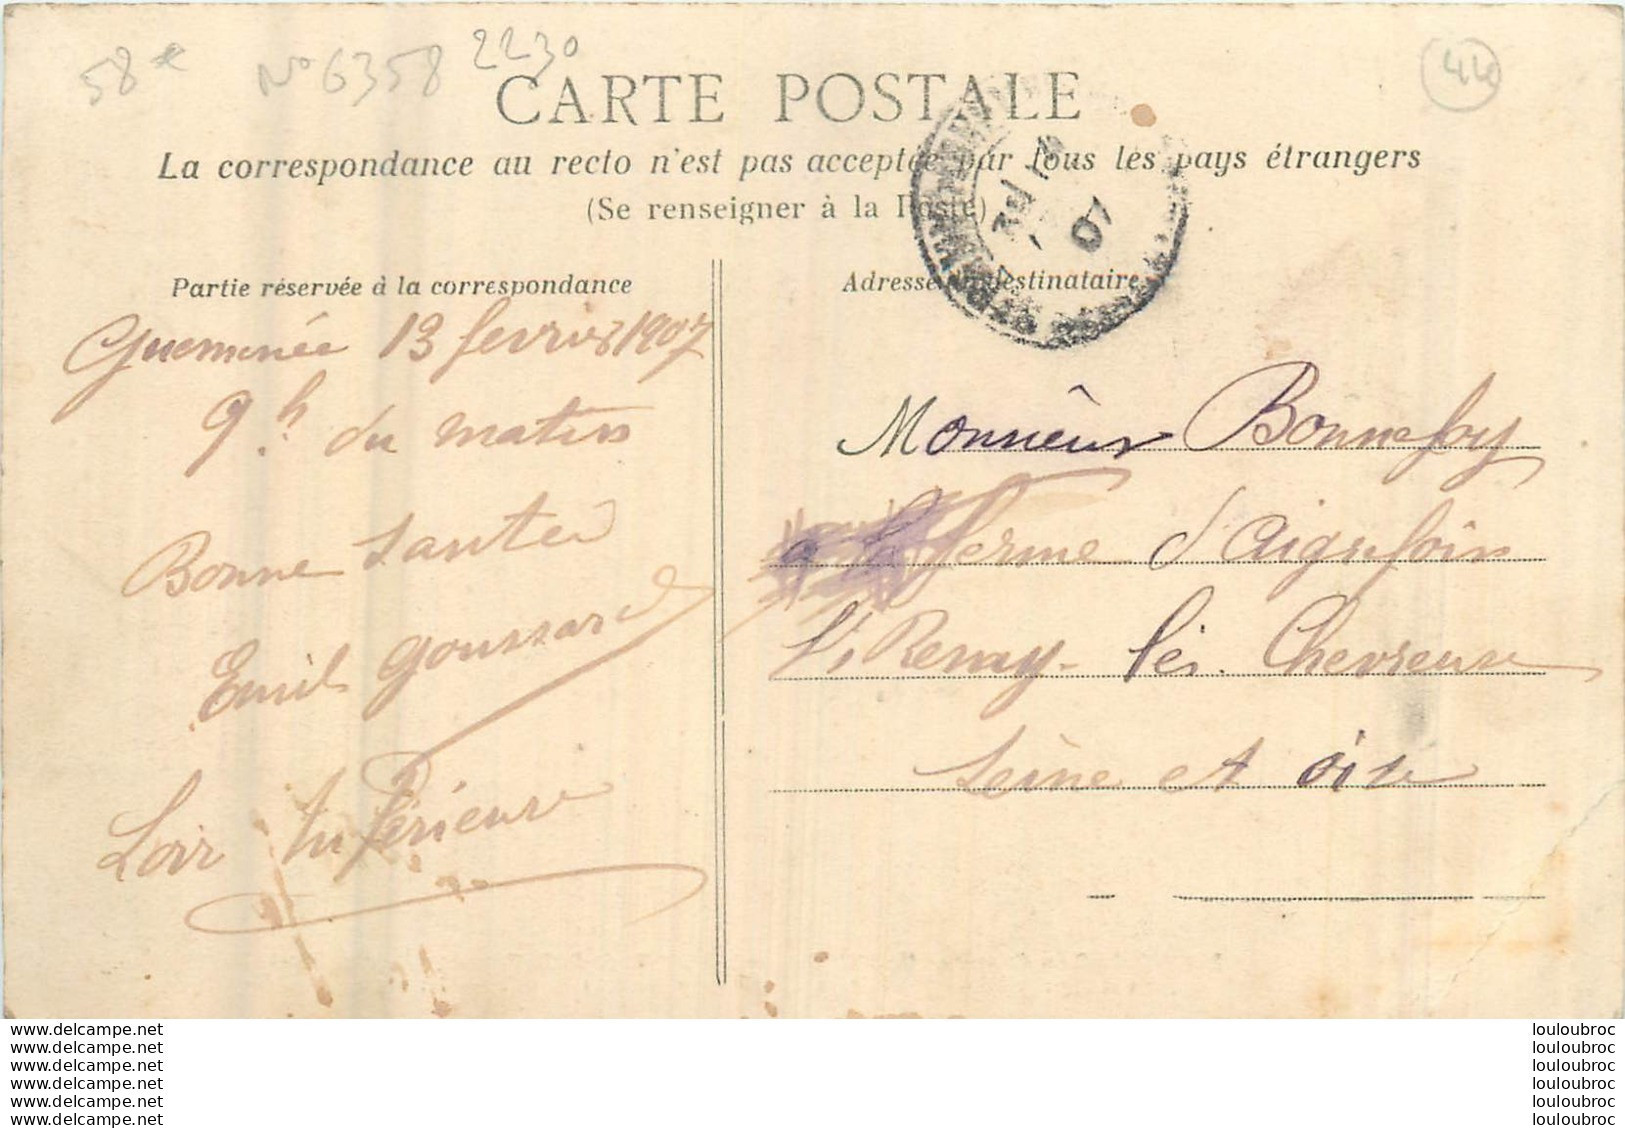 58 €
No 6358
2230
44
CARTE POSTALE
La correspondance au recto n'est pas acceptée par tous les pays étrangers
(Se renseigner à la Poste)
07
Partie réservée à la correspondance
Guemenée 13 fevrier 1907
9.h du matin
Bonne Santée
Emile Goussard
Loir Inférieure
Adresse du destinataire
Monsieur Bonnefoy
a la ferme d'Aiguefoin
St Remy les Chevreuse
Seine et oise
www.delcampe.net
www.delcampe.net
www.delcampe.net
www.delcampe.net
www.delcampe.net
www.delcampe.net
louloubroc
louloubroc
louloubroc
louloubroc
louloubroc
louloubroc